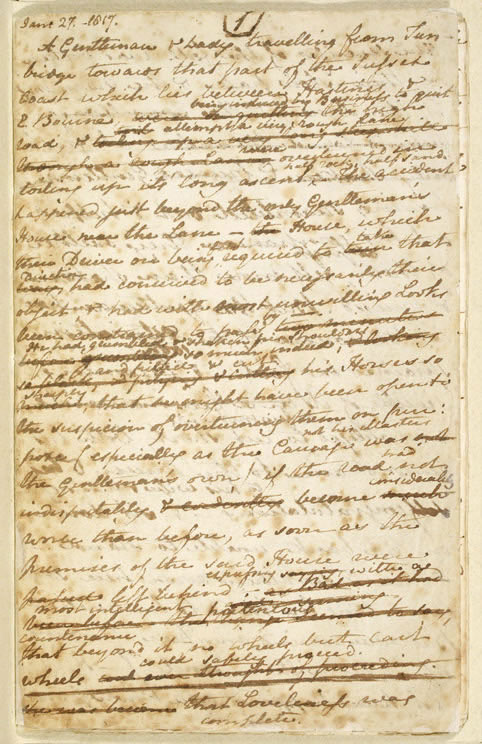 Jan: 27. - 1817.
1
A Gentleman & Lady travelling from Tun-
bridge towards that part of the Sussex
Coast which lies between Hastings &
E. Bourne
being induced by Business to quit
the high
road, & attempt a very rough Lane,
were overturned in
toiling up its long ascent half rock, half sand.
The accident
happened just beyond the only Gentleman's
House near the Lane - a House, which
their Driver on being required to take that
Direction, had conceived to be necessarily their
object & had with most unwilling Looks
been constrained to pass by
He had grumbled
so much
& pitied & cut his Horses so
sharply, that he might have been open to
the suspicion of overturning them on pur:
pose (especially as the Carriage was not his Masters
the Gentleman's own) if the road had not
indisputably become considerably
worse than before, as soon as the
premises of the said House were
left behind expressing with a
most intelligent
countenance
that beyond it no wheels but cart
wheels could safely proceed.
that Loveliness was
complete.